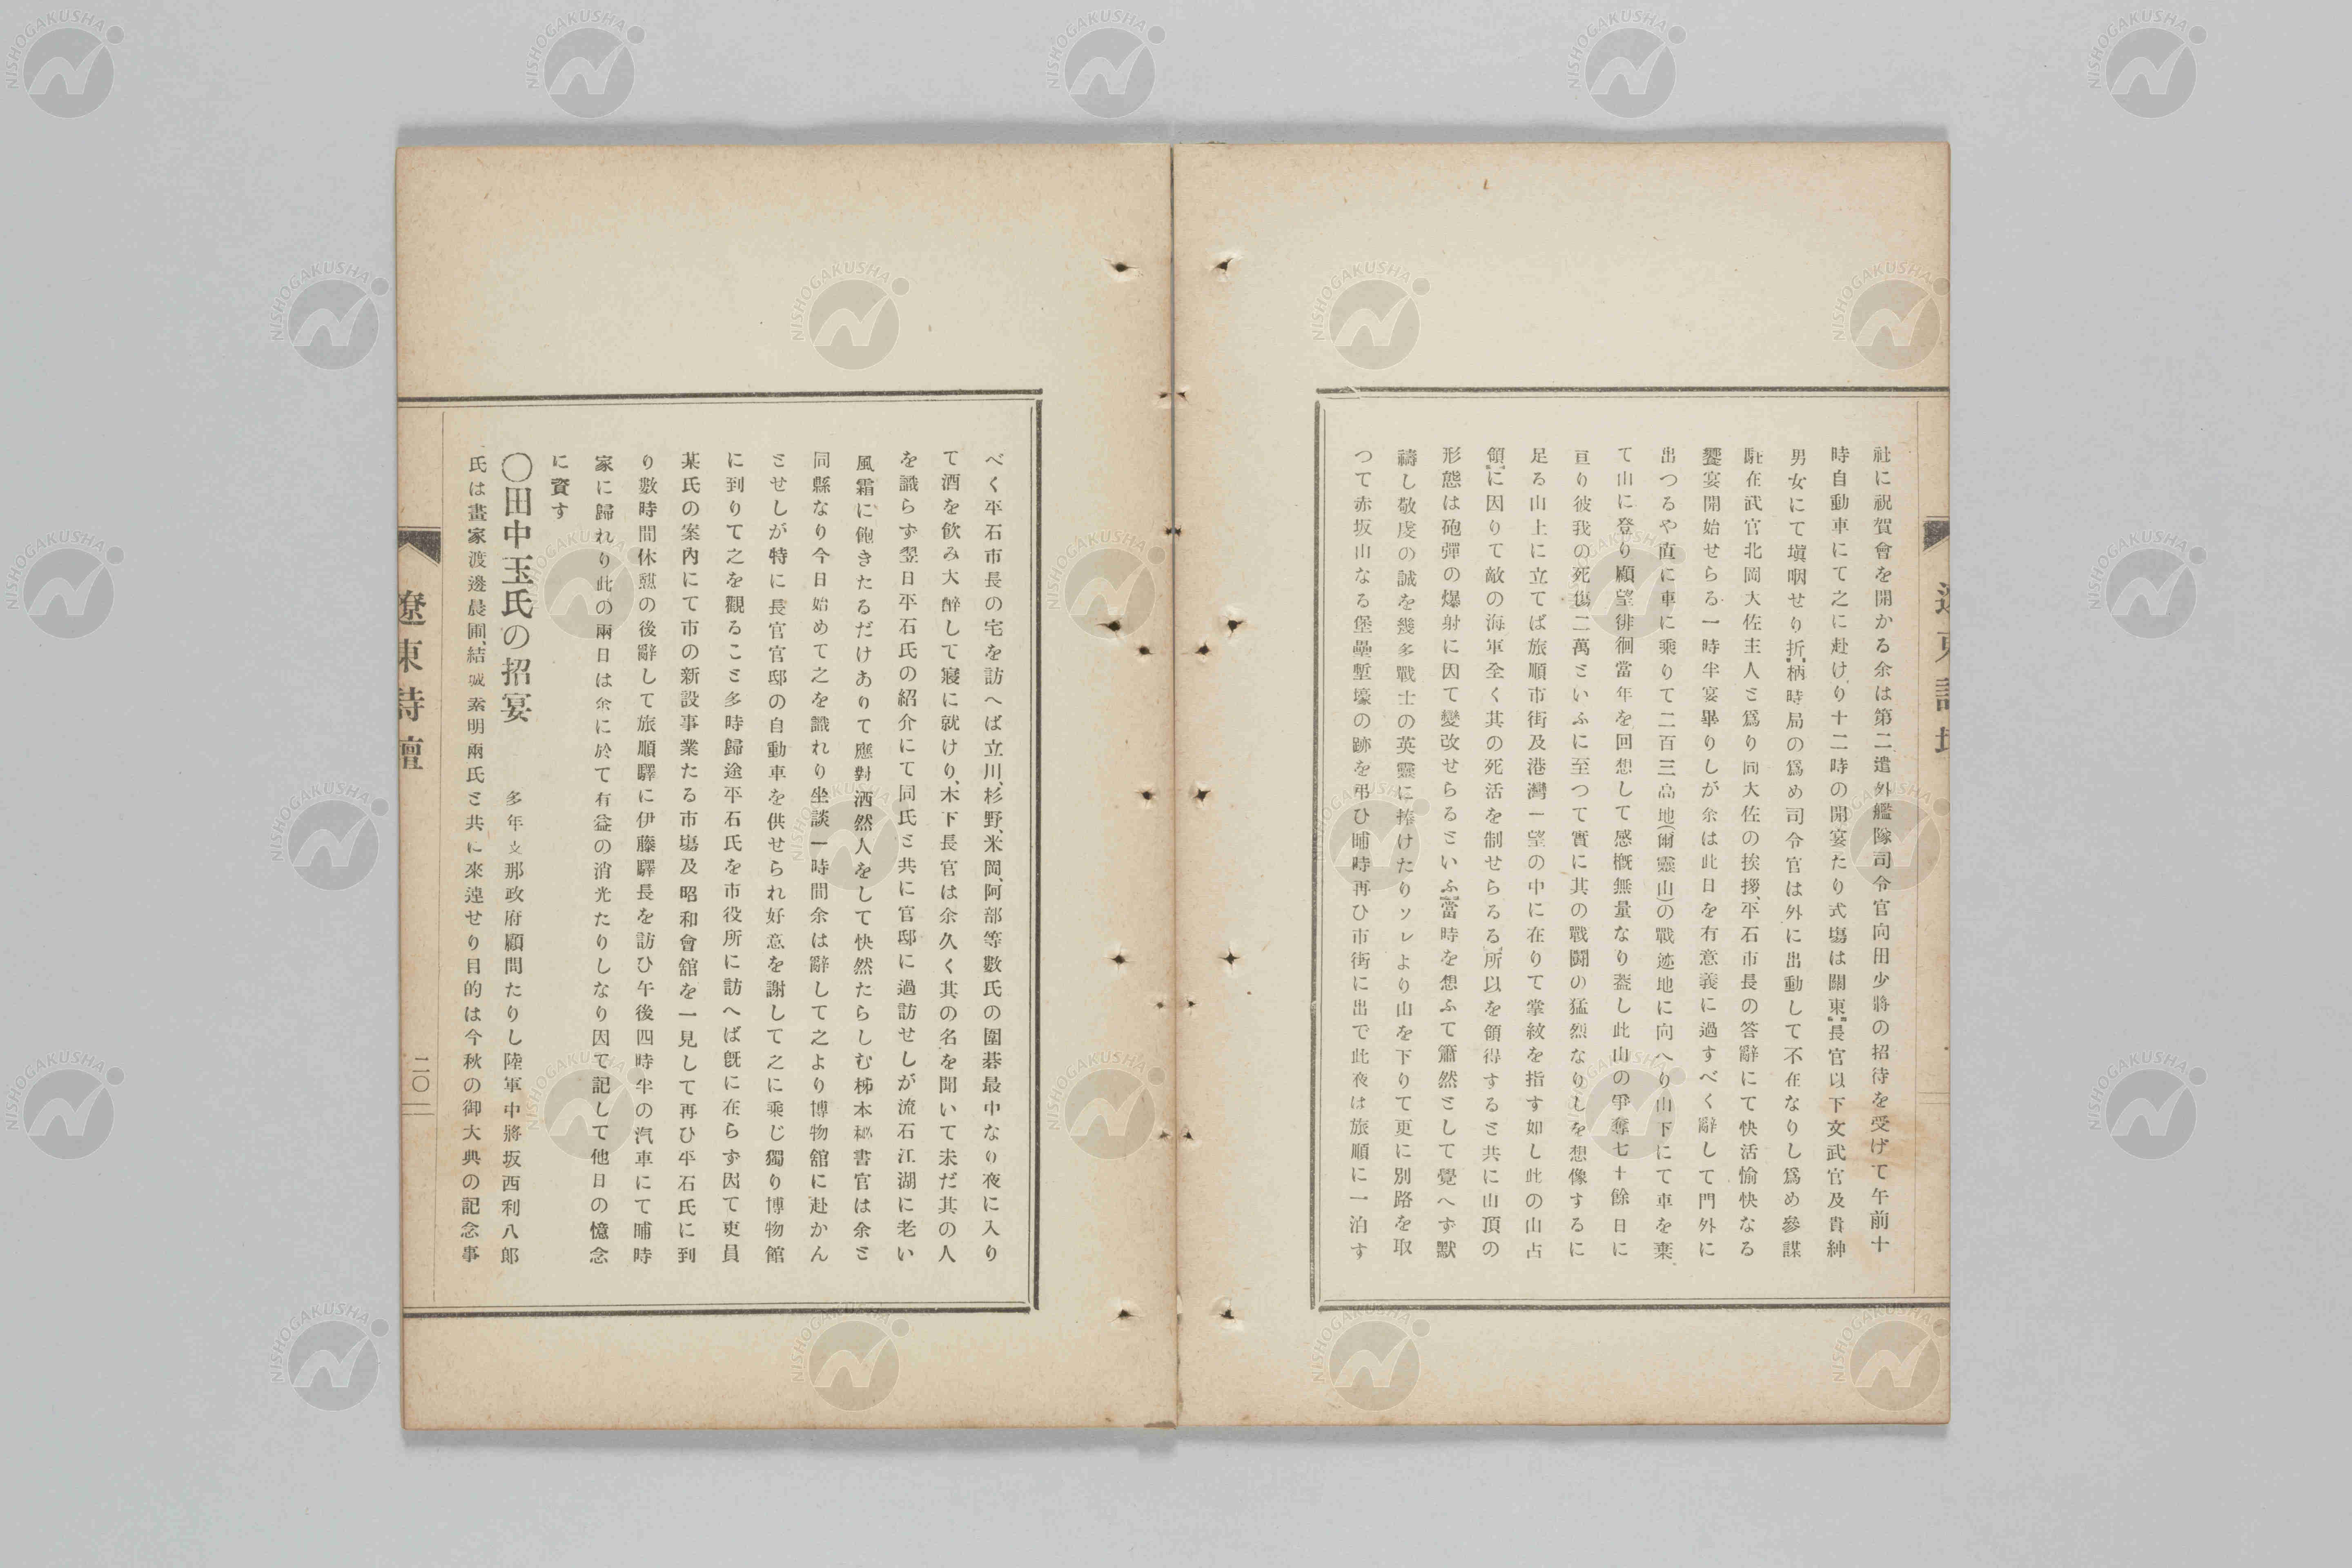 社に祝賀會を開かる余は第二遣外艦隊司令官向田少將の招待を受げて午前十
時自動車にて之に赴けり十二時の開宴たり式塲は關東長官以下文武官及貴紳
男女にて塡咽せり折柄時局の爲め司令官は外に出動して不在なりし爲め參謀
駐在武官北岡大佐主人と爲り同大佐の挨拶、平石市長の答辭にて快活愉快なる
饗宴開始せらる一時半宴畢りしが余は此日を有意義に過すべく辭して門外に
出つるや直に車に乘りて二百三高地(爾靈山)の戰迹地に向へり山下にて車を棄
て山に登り顧望徘徊當年を回想して感概無量なり蓋し此山の爭奪七十餘日に
亘り彼我の死傷二萬といふに至つて實に其の戰鬪の猛烈なりしを想像するに
足る山上に立てば旅順市街及港灣一望の中に在りて掌紋を指す如し此の山占
領に因りて敵の海軍全く其の死活を制せらるる所以を領得すると共に山頂の
形態は砲彈の爆射に因て變改せらるといふ當時を想ふて簫然として覺へず默
禱し敬虔の誠を幾多戰士の英靈に捧けたりソレより山を下りて更に別路を取
つて赤坂山なる堡壘塹壕の跡を弔ひ晡時再ひ市街に出で此夜は旅順に一泊す
べく平石市長の宅を訪へば立川、杉野、米岡、阿部等數氏の圍碁最中なり夜に入り
て酒を飲み大醉して寢に就けり、木下長官は余久く其の名を聞いて未だ其の人
を識らず翌日平石氏の紹介にて同氏と共に官邸に過訪せしが流石江湖に老い
風霜に飽きたるだけありて應對洒然人をして快然たらしむ柹本秘書官は余と
同縣なり今日始めて之を識れり坐談一時間余は辭して之より博物舘に赴かん
とせしが特に長官官邸の自動車を供せられ好意を謝して之に乘じ獨り博物館
に到りて之を觀ること多時歸途平石氏を市役所に訪へば旣に在らず因て吏員
某氏の案內にて市の新設事業たる市塲及昭和會舘を一見して再ひ平石氏に到
り數時間休憩の後辭して旅順驛に伊藤驛長を訪ひ午後四時半の汽車にて晡時
家に歸れり此の兩日は余に於て有益の消光たりしなり因て記して他日の憶念
に資す
〇田中玉氏の招宴　多年支那政府顧問たりし陸軍中將坂西利八郎
氏は畫家渡邊晨畝、結城素明兩氏と共に來連せり目的は今秋の御大典の記念事
遼東詩壇
二〇